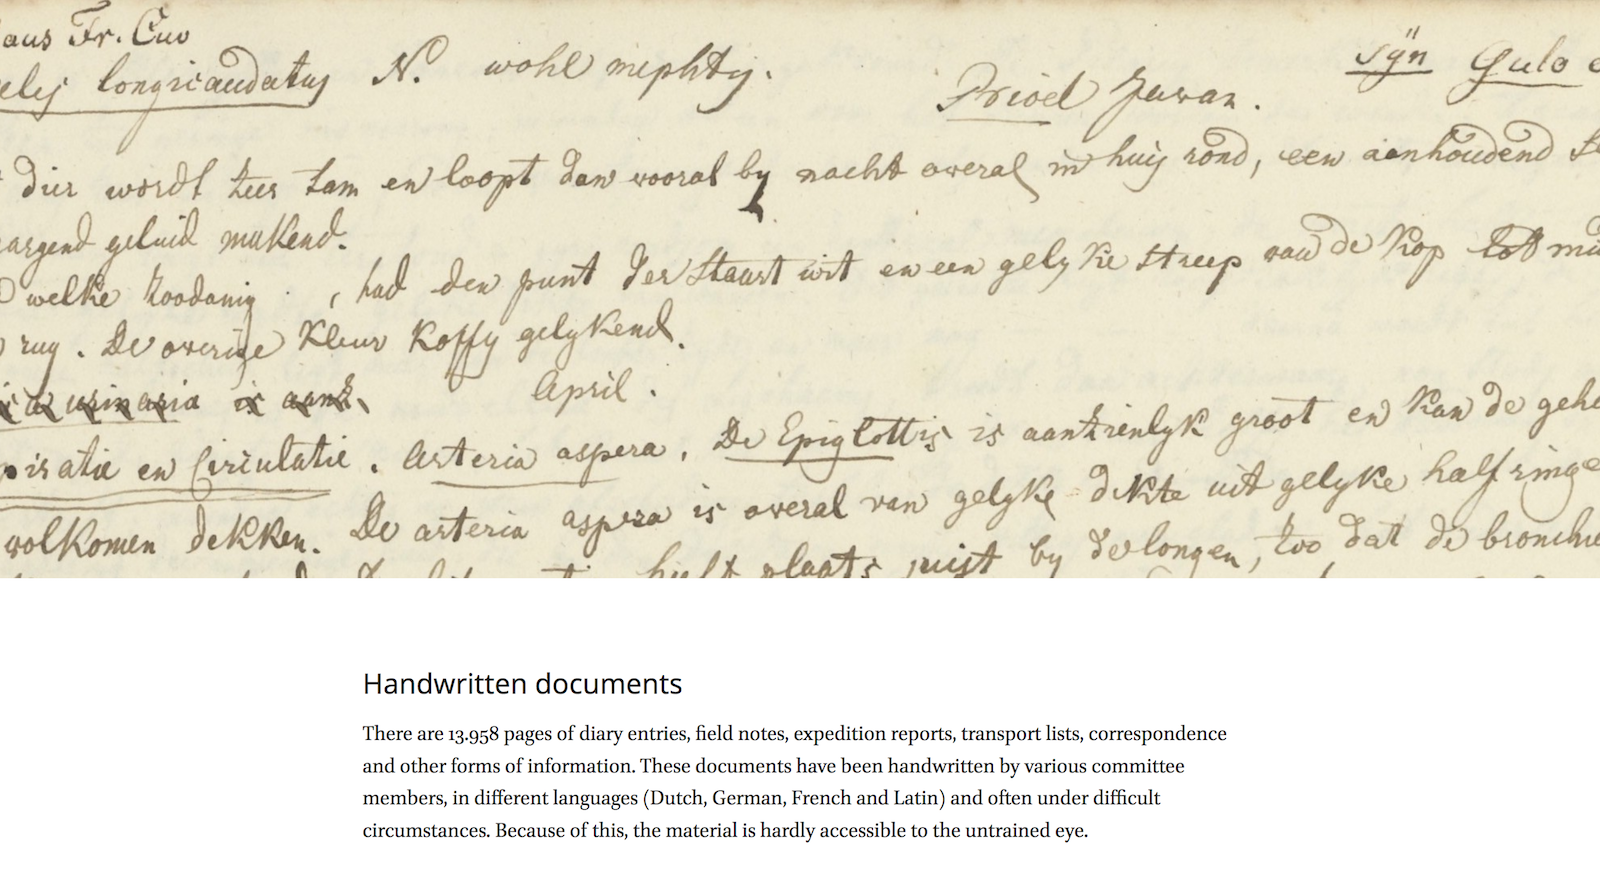 aus Fr. Cuv
longicaudatus N. wohl mephty. Prioel Javan. syn Gulo
dier wordt zeer tam en loopt dan vooral by nacht overal in huis rond, een aanhoudend
geluid makend.
welke zoodanig , had den punt der staart wit en een gelyke streep van de kop tot
rug. De overige kleur koffy gelykend.
urinaria is aanz. April.
en Circulatie. Arteria aspera. De Epiglottis is aanzienlyk groot en kan de gehe
volkomen dekken. De arteria aspera is overal van gelyke dikte uit gelyke half ringe
plaats, juist by de longen, zoo dat de bronchi
Handwritten documents
There are 13.958 pages of diary entries, field notes, expedition reports, transport lists, correspondence
and other forms of information. These documents have been handwritten by various committee
members, in different languages (Dutch, German, French and Latin) and often under difficult
circumstances. Because of this, the material is hardly accessible to the untrained eye.